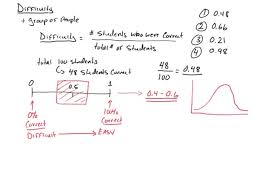 Difficulty
→ group of people
Difficulty = # Students who were correct
total # of Students
total 100 students
↳ 48 students correct
48
100 = 0.48
① 0.48
② 0.66
③ 0.21
④ 0.98
0 0.5 1
0% Correct
100% Correct
Difficult → EASY
0.4 - 0.6